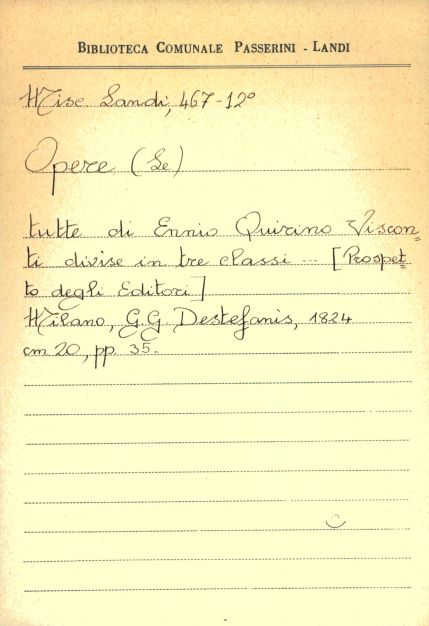 BIBLIOTECA COMUNALE PASSERINI - LANDI
Misc Landi, 467-12º
Opere (Le)
tutte di Ennio Quirino Viscon=
ti divise in tre classi ... [Prospet=
to degli Editori]
Milano, G.G. Destefanis, 1824
cm 20, pp. 35.